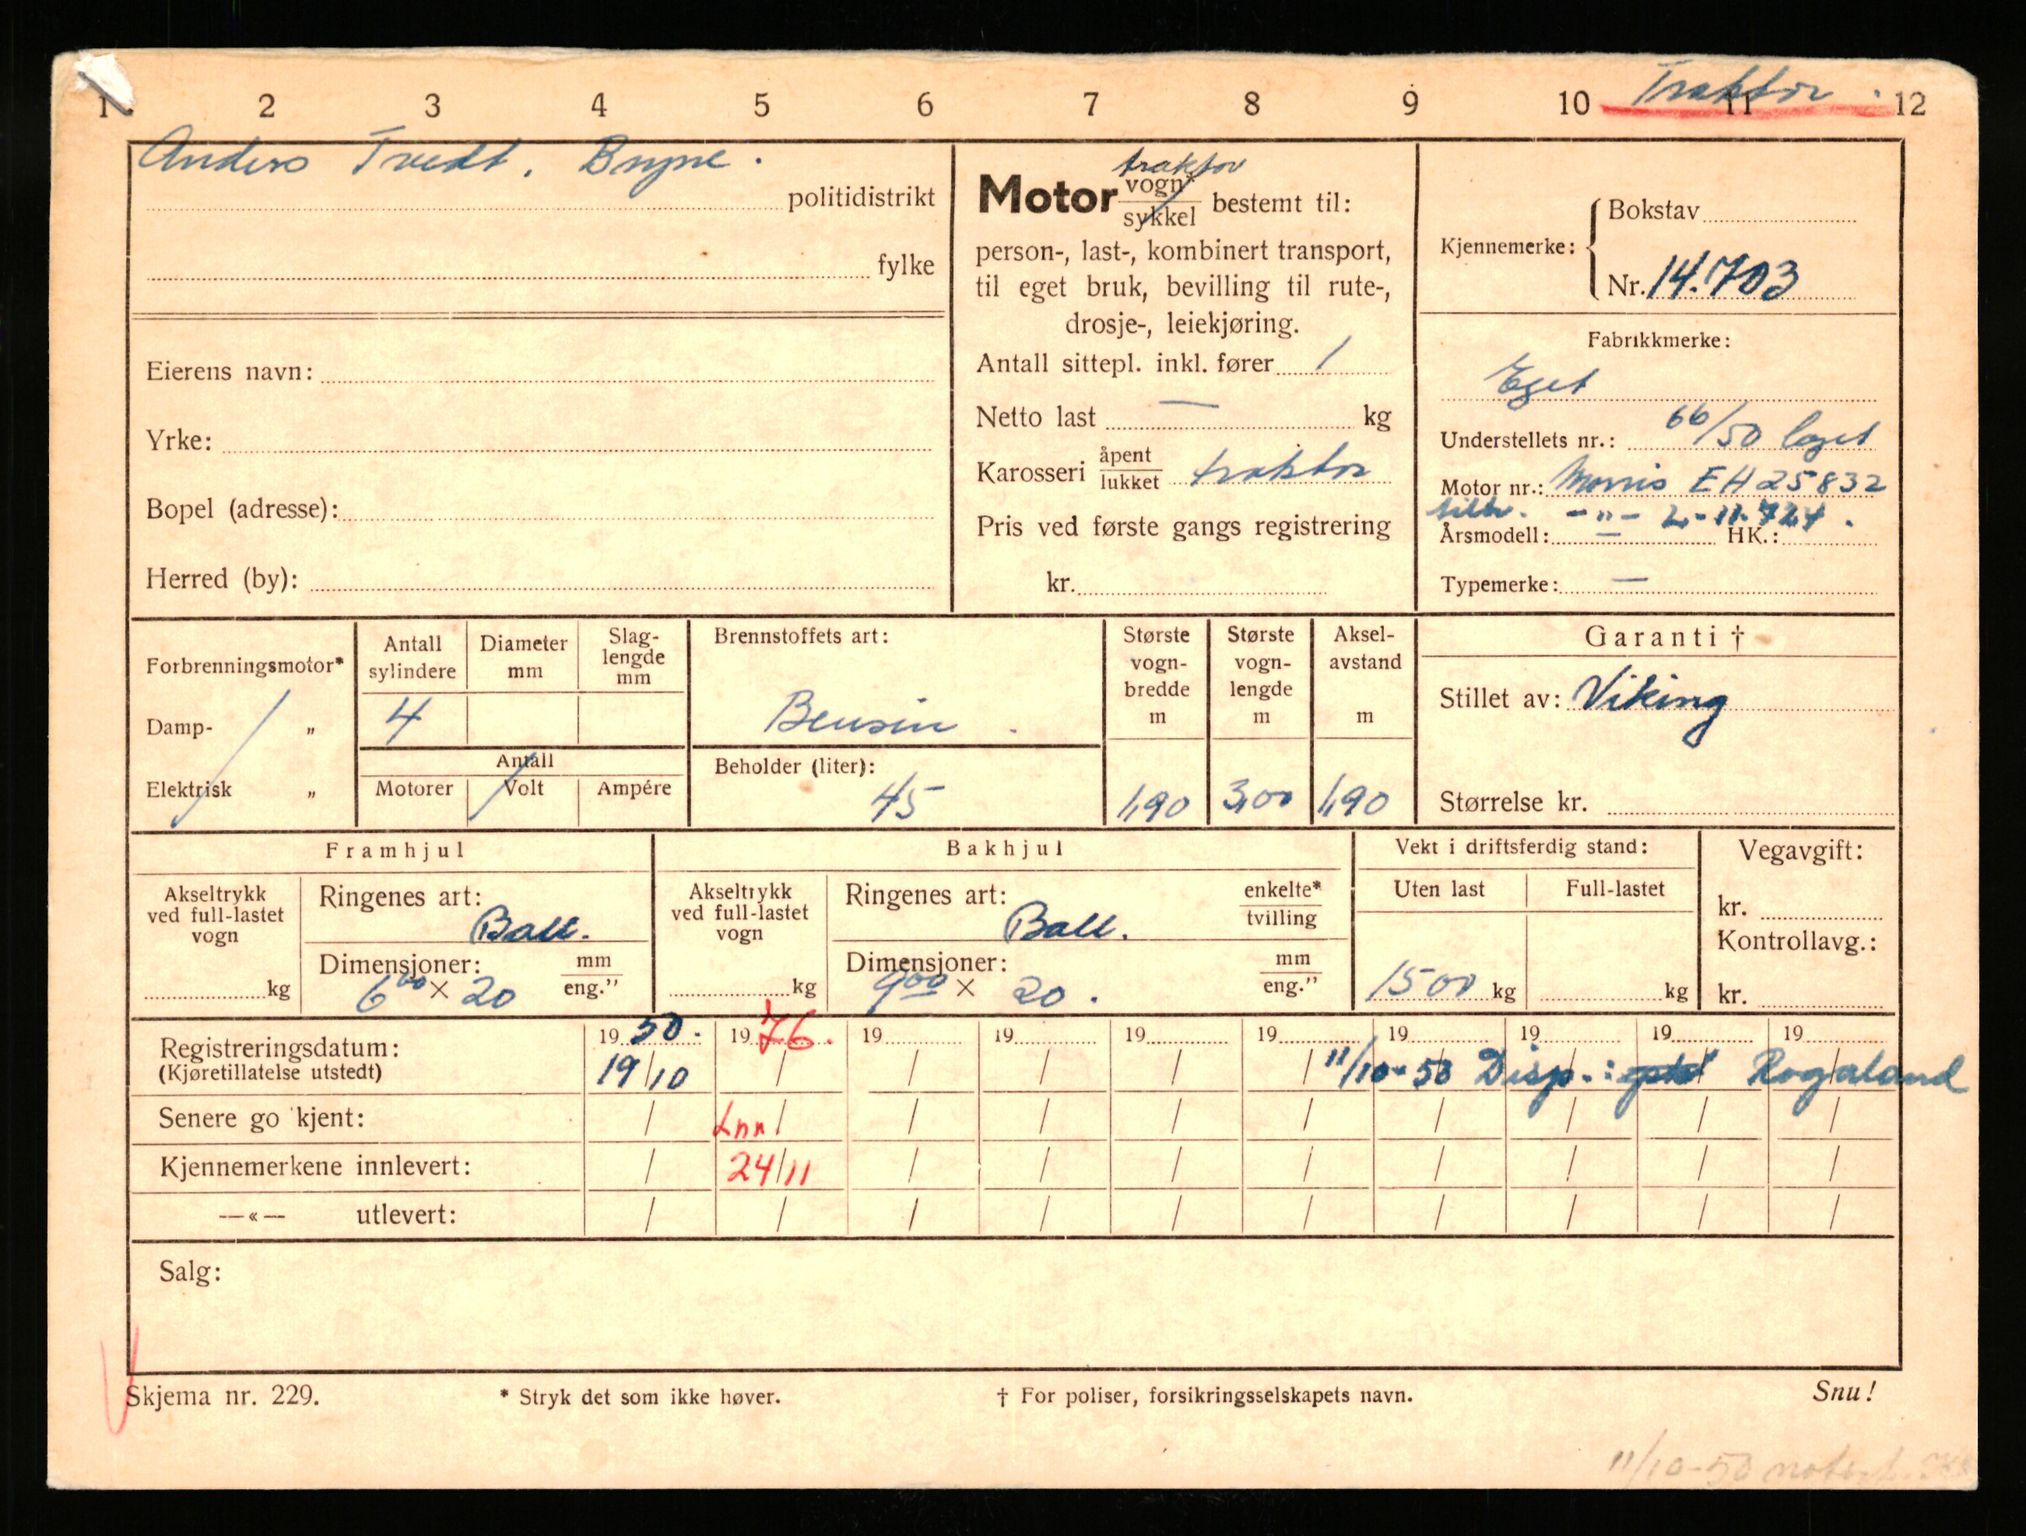 Traktor.
1 2 3 4 5 6 7 8 9 10 11 12
Anders Tvedt. Bryne.
politidistrikt
fylke
Eierens navn:
Yrke:
Bopel (adresse):
Herred (by):
traktor
Motor vogn* bestemt til:
sykkel
person-, last-, kombinert transport,
til eget bruk, bevilling til rute-,
drosje-, leiekjøring.
Antall sittepl. inkl. fører 1
Netto last — kg
Karosseri åpent traktor
lukket
Pris ved første gangs registrering
kr.
Kjennemerke: Bokstav
Nr. 14.703
Fabrikkmerke:
Eget
Understellets nr.: 66/50 laget
Motor nr.: Morris EH 25832
tilh. -"- L-11.724.
Årsmodell: — HK.:
Typemerke: —
Forbrenningsmotor*
Damp- „
Elektrisk „
Antall sylindere
Diameter mm
Slag-lengde mm
4
Antall
Motorer Volt Ampére
Brennstoffets art:
Bensin.
Beholder (liter):
45
Største vogn-bredde m
1,90
Største vogn-lengde m
3,00
Aksel-avstand m
1,90
Garanti †
Stillet av: Viking
Størrelse kr.
Framhjul
Akseltrykk ved full-lastet vogn
kg
Ringenes art:
Ball.
Dimensjoner: mm
6 00 × 20 eng.”
Bakhjul
Akseltrykk ved full-lastet vogn
kg
Ringenes art: enkelte*
Ball. tvilling
Dimensjoner: mm
9 00 × 20. eng.”
Vekt i driftsferdig stand:
Uten last Full-lastet
1500 kg kg
Vegavgift:
kr.
Kontrollavg.:
kr.
19 50. 19 76. 19 19 19 19 19 19 19 19
Registreringsdatum: 19/10 / / / / / 11/10-50 Disp.: Rogaland
(Kjøretillatelse utstedt)
Senere go kjent: / Lnn / / / / / / / / /
Kjennemerkene innlevert: / 24/11 / / / / / / / /
—«— utlevert: / / / / / / / / / /
Salg:
Skjema nr. 229. * Stryk det som ikke høver. † For poliser, forsikringsselskapets navn. Snu!
11/10-50 notert.